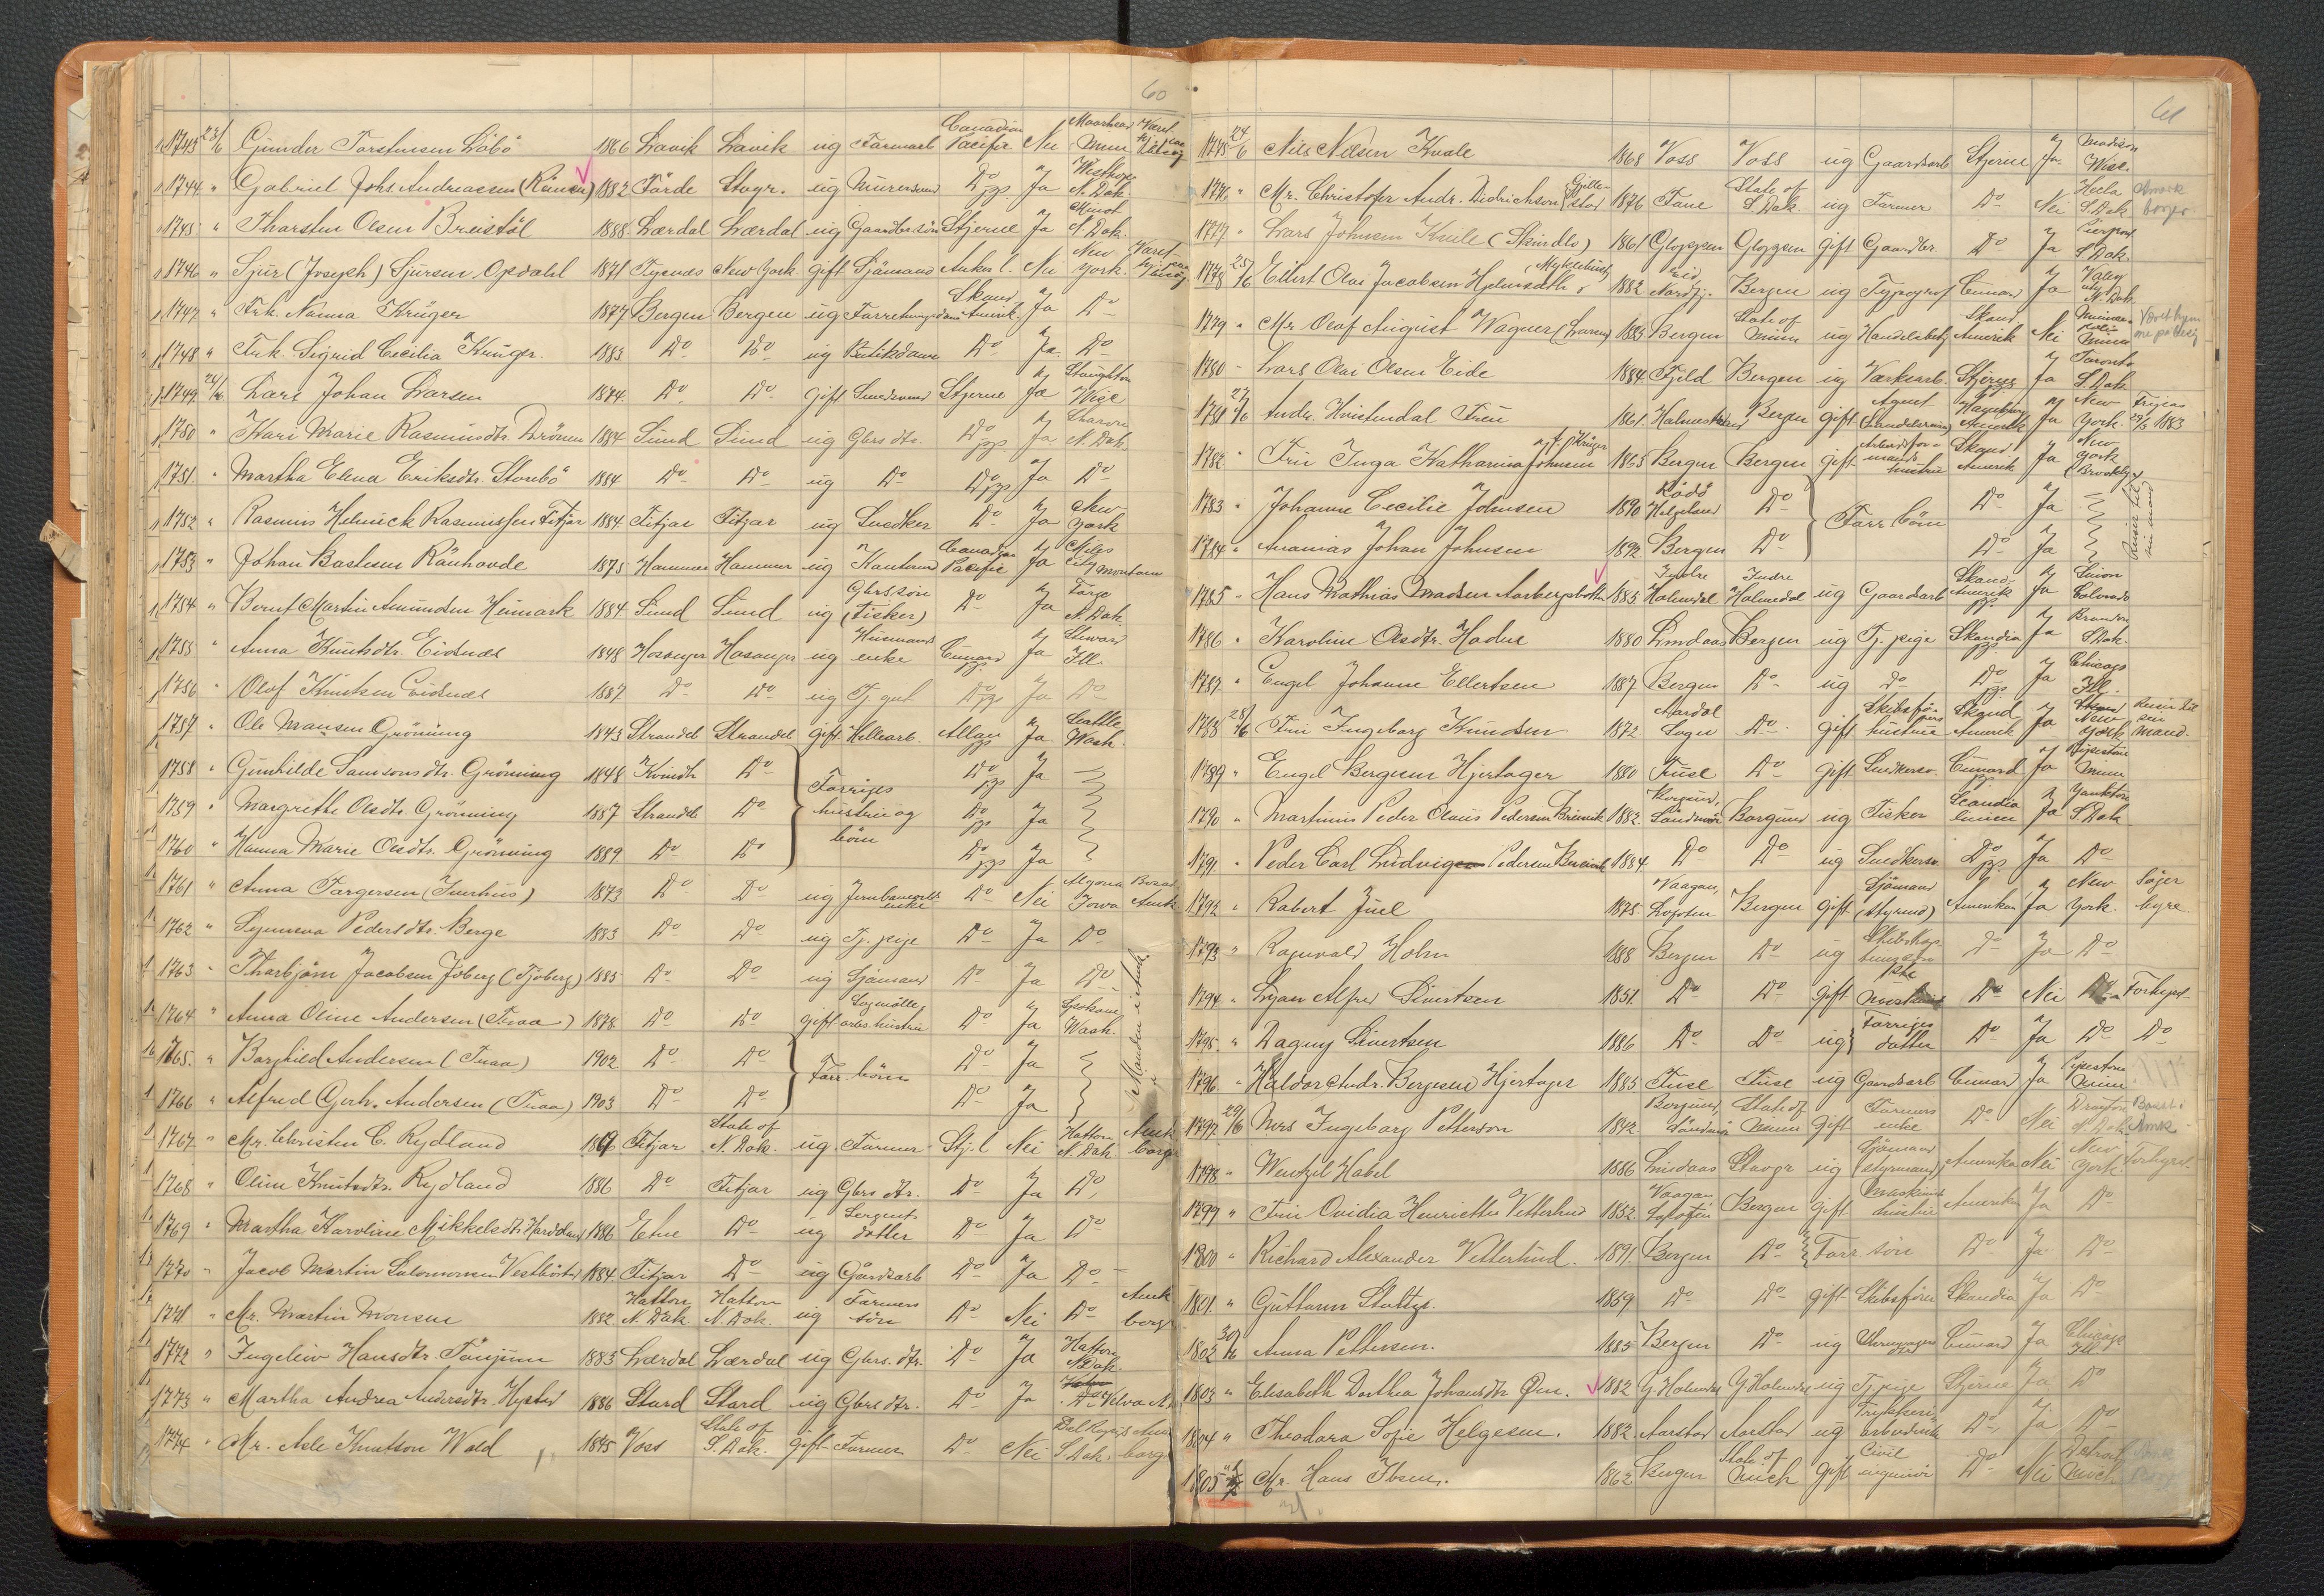 60
1743 23/6 Gunder Torstensen Löbö 1866 Lavik Lavik ug Farmarb Canadian Pacific Nei Moorhead Minn Været
1744 " Gabriel Johs Andreassen 1882 Förde Stavgr. ug Murersvend Do Ja Westhope N. Dak.
1745 " Thorsten Olsen Breistöl 1888 Lærdal Lærdal ug Gaardbr sön Stjerne Ja Minot N. Dak.
1746 " Sjur (Joseph) Sjursen Opdahl 1871 Tysnes New York gift Sjömand Anker l. Nei New York. Været
1747 " Frk. Nanna Krüger 1877 Bergen Bergen ug Forretningsdame Skand. Amerik. Ja Do
1748 " Frk. Sigrid Cecilia Krüger. 1883 Do Do ug Butikdame Do Ja. Do
1749 24/6 Lars Johan Larsen 1874. Do Do gift Snedsvend Stjerne Ja Stoughton Wisc
1750 " Kari Marie Rasmusdtr. Drönen 1884 Sund Sund ug Gbrs dtr. Do Ja Sharon N. Dak.
1751 " Martha Elena Eriksdtr. Storebö 1884 Do Do ug Do Do Ja Do
1752 " Rasmus Helmick Rasmussen Fitjar 1884. Fitjar Fitjar ug Snedker Do Ja New York
1753 " Johan Bastesen Rånhovde 1875 Hammer Hammer ug Kontorm Canadian Pacific Ja Miles City Montana
1754 " Bernt Martin Amundsen Heimark 1884. Sund Sund ug Gbrs sön (Fisker) Do Ja Fargo N. Dak
1755 " Anna Knutsdtr. Eidsnes 1848 Hosanger Hosanger ug Husmands enke Cunard Ja Steward Ill.
1756 " Olof Knutsen Eidsnes 1887 Do Do ug Tj. gut Do Ja Do
1757 " Ole Monsen Grönning 1843 Strandeb Strandeb gift Hellearb. Allan Ja Seattle Wash.
1758 " Gunhilde Samsonsdtr. Grönning 1848 Kvindh Do Forriges hustrue og börn Do Ja
1759 " Margrethe Olsdtr. Grönning 1887 Strandeb Do Do Ja
1760 " Hanna Marie Olsdtr. Grönning 1889 Do Do Do Ja
1761 " Anna Torgersen 1873 Do Do ug enke Do Nei Algona Iowa Amk
1762 " Synneva Pedersdtr. Berge 1883 Do Do ug Tj. pige Do Ja Do
1763 " Thorbjörn Jacobsen Jöberg (Tjoberg) 1885 Do Do ug Sjömand Do Ja Do
1764 " Anna Oline Andersen (Tvaa) 1878 Do Do gift Sagmölle arbs. hustrue Do Ja Spokane Wash. Manden i Amk
1765. " Borghild Andersen (Tvaa) 1902 Do Do Forr. börn Do Ja
1766 " Alfred Gerh. Andersen (Tvaa) 1903 Do Do Do Ja
1767 " Mr. Christen C. Rydland 1869 Fitjar State of N. Dak. ug Farmer Stj. l Nei Hatton N. Dak Amk borg
1768 " Oline Knutsdtr. Rydland 1886 Do Fitjar ug Gbrs dtr. Do Ja Do
1769 " Martha Karoline Mikkelsdtr. 1886 Etne Do ug Sergents datter Do Ja Do
1770 " Jacob Martin Salomonsen Vestböstad 1884. Fitjar Do ug Gårdsarb Do Ja Do
1771 " Mr. Martin Monsen 1882 Hatton N. Dak Hatton N. Dak. ug Farmers sön Do Nei Do Amk borg
1772 " Ingeleiv Hansdtr. Tönjum 1883 Lærdal Lærdal ug Gbrs. dtr. Do Ja Hatton N. Dak.
1773 " Martha Andrea Andersdtr. Hystad 1886 Stord Stord ug Gbrs dtr. Do Ja Do Velva
1774 " Mr. Asle Knutson Wold 1845 Voss State of S. Dak. gift Farmer Do Nei Del Rapids S. Dak. Am borg
61
1775 24/6 Nils Nilsen Kvale 1868 Voss Voss ug Gaardsarb Stjerne Ja Madison Wisc.
1776 " Mr. Christofer Andr. Didrickson (Gjellestad 1876 Fane State of S. Dak. ug Farmer Do Nei Hecla S. Dak Amrk borger
1777 " Lars Johnsen Kvile (Skindlo) 1861 Gloppen Gloppen gift Gaardbr. Do Ja Pierpont S. Dak.
1778 25/6 Ellert Olai Jacobsen (Myklebust) 1882 Eid Nordfj. Bergen ug Typograf Cunard Ja Valley City N. Dak.
1779 " Mr Olaf August Wagner 1883 Bergen State of Minn ug Handelsbetj Skand Amerik Nei Minneapolis Minn
1780 - Lars Olai Olsen Eide 1884. Fjeld Bergen ug Værksarb. Stjerne Ja Toronto S. Dak
1781 27/6 Andr. Kvistendal Freu 1861. Bergen gift Agent Amerik Ja New York. 29/3 1883
1782. " Fru Inga Katharina Johnsen f. Krüger 1865 Bergen Bergen gift Arbeidsformands hustrue Skand Amerik Ja New York (Brooklyn)
1783 " Johanne Cecilie Johnsen 1890 Rödö Helgeland Do Forr. börn Do Ja Reiser til sin mand
1784 " Ananias Johan Johnsen 1892 Bergen Do Do Ja
1785 " Hans Mathias Madsen Aarbergsbotten 1883. Indre Holmedal Indre Holmedal ug Gaardarb Skand. Amerik Ja Simon Colorado
1786 " Karoline Olsdtr. Hodne 1880 Lindaas Bergen ug Tj. pige Skandia Ja Brandon S. Dak.
1787 " Engel Johanne Ellertsen 1887 Bergen Do ug Do Do Ja Chicago Ill.
1788 28/6 Fru Ingeborg Knudsen 1872. Aardal Sogn Do gift Skibsförers hustrue Skand Amerik Ja New York Reiser til sin mand.
1789 " Engel Bergesen Hjertager 1880 Fuse Do gift Snedkersv. Cunard Ja Pipestone Minn
1790 " Martinus Peder Claus Pedersen 1882. Borgund, Söndmör Borgund ug Fisker Scandia linien Ja Yankton S. Dak
1791 " Peder Carl Ludvig Pedersen 1884. Do Do ug Snedkersv. Do Ja Do
1792 " Robert Juel 1875. Vaagan, Lofoten Bergen gift Sjömand (Styrmd) Amerikan Ja New York. Söger hyre.
1793 " Ragnvald Holm 1888 Bergen Do ug Do Ja Do
1794 " Lyan Alfred Sivertsen 1851. Do Do gift Do Nei Do Forhyret
1795. " Dagny Sivertsen 1886 Do Do ug Forriges datter Do Ja Do Do
1796 " Haldor Andr. Bergesen Hjertager 1885 Fuse Fuse ug Gaardsarb Cunard Ja Pipestone Minn
1797 29/6 Mrs Ingeborg Petterson 1842 Borgund, Söndmör State of Minn Gift Farmers enke Do Nei Drayton N. Dak Bosat i Amk
1798 " Wentzel Habel 1886 Lindaas Stavgr ug Sjömand (Styrmand) Amerika Nei New York. Forhyret
1799 " Fru Ovidia Henriette Vetterlund 1852. Vaagan, Lofoten Bergen Gift Maskinist hustrue Amerikan Ja Do
1800 " Richard Alexander Vetterlund. 1891. Bergen Do Forr. sön Do Ja Do
1801. " Guttorm Stoltz. 1859 Do Do gift Skibsförer Skandia Ja Do
1802 30/6 Anna Pettersen. 1885 Bergen Do ug Cunard Ja Chicago Ill
1803 " Elisabeth Dorthea Johansdtr Øen. 1882 Y. Holmedal Y Holmedal ug Tj pige Stjerne Ja Do
1804 " Theodora Sofie Helgesen. 1882. Aarstad Aarstad ug Trykkeri arbeiderske Do Ja Do
1805 Mr. Hans Ibsen. 1862 Bergen State of Mich gift Civil ingeniör Do Nei Detroit Mich.